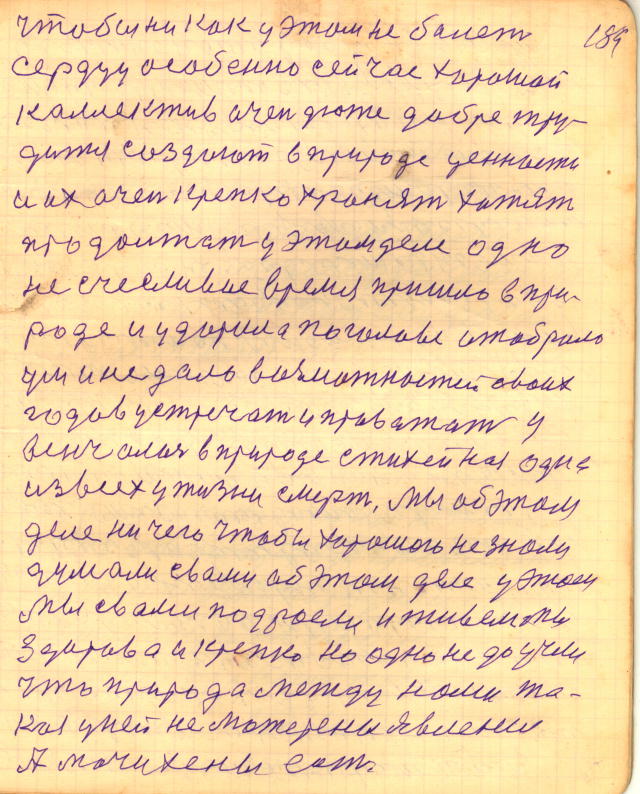 184
чтобы ни как у этом не балеть
сердцу особенно сейчас хороший
каллектив очен дюже добре тру-
дится создают в природе ценности
и их очен крепко хранят хотят
продолжат у этом деле одно
не счесливае время пришло в при-
роде и ударила по голове отобрало
ум и не дало возможностей своих
годов устречат и проважат у
венчалая в природе стихейная одна
из всех у жизни смерт, мы об этом
деле ни чего чтобы хорошого не знали
думали свами об этом деле у этом
мы свами подросли и живем мы
здорова и крепко но одно не доучли
что природа между нами та-
кая у ней не матерены явления
А мачихены есть